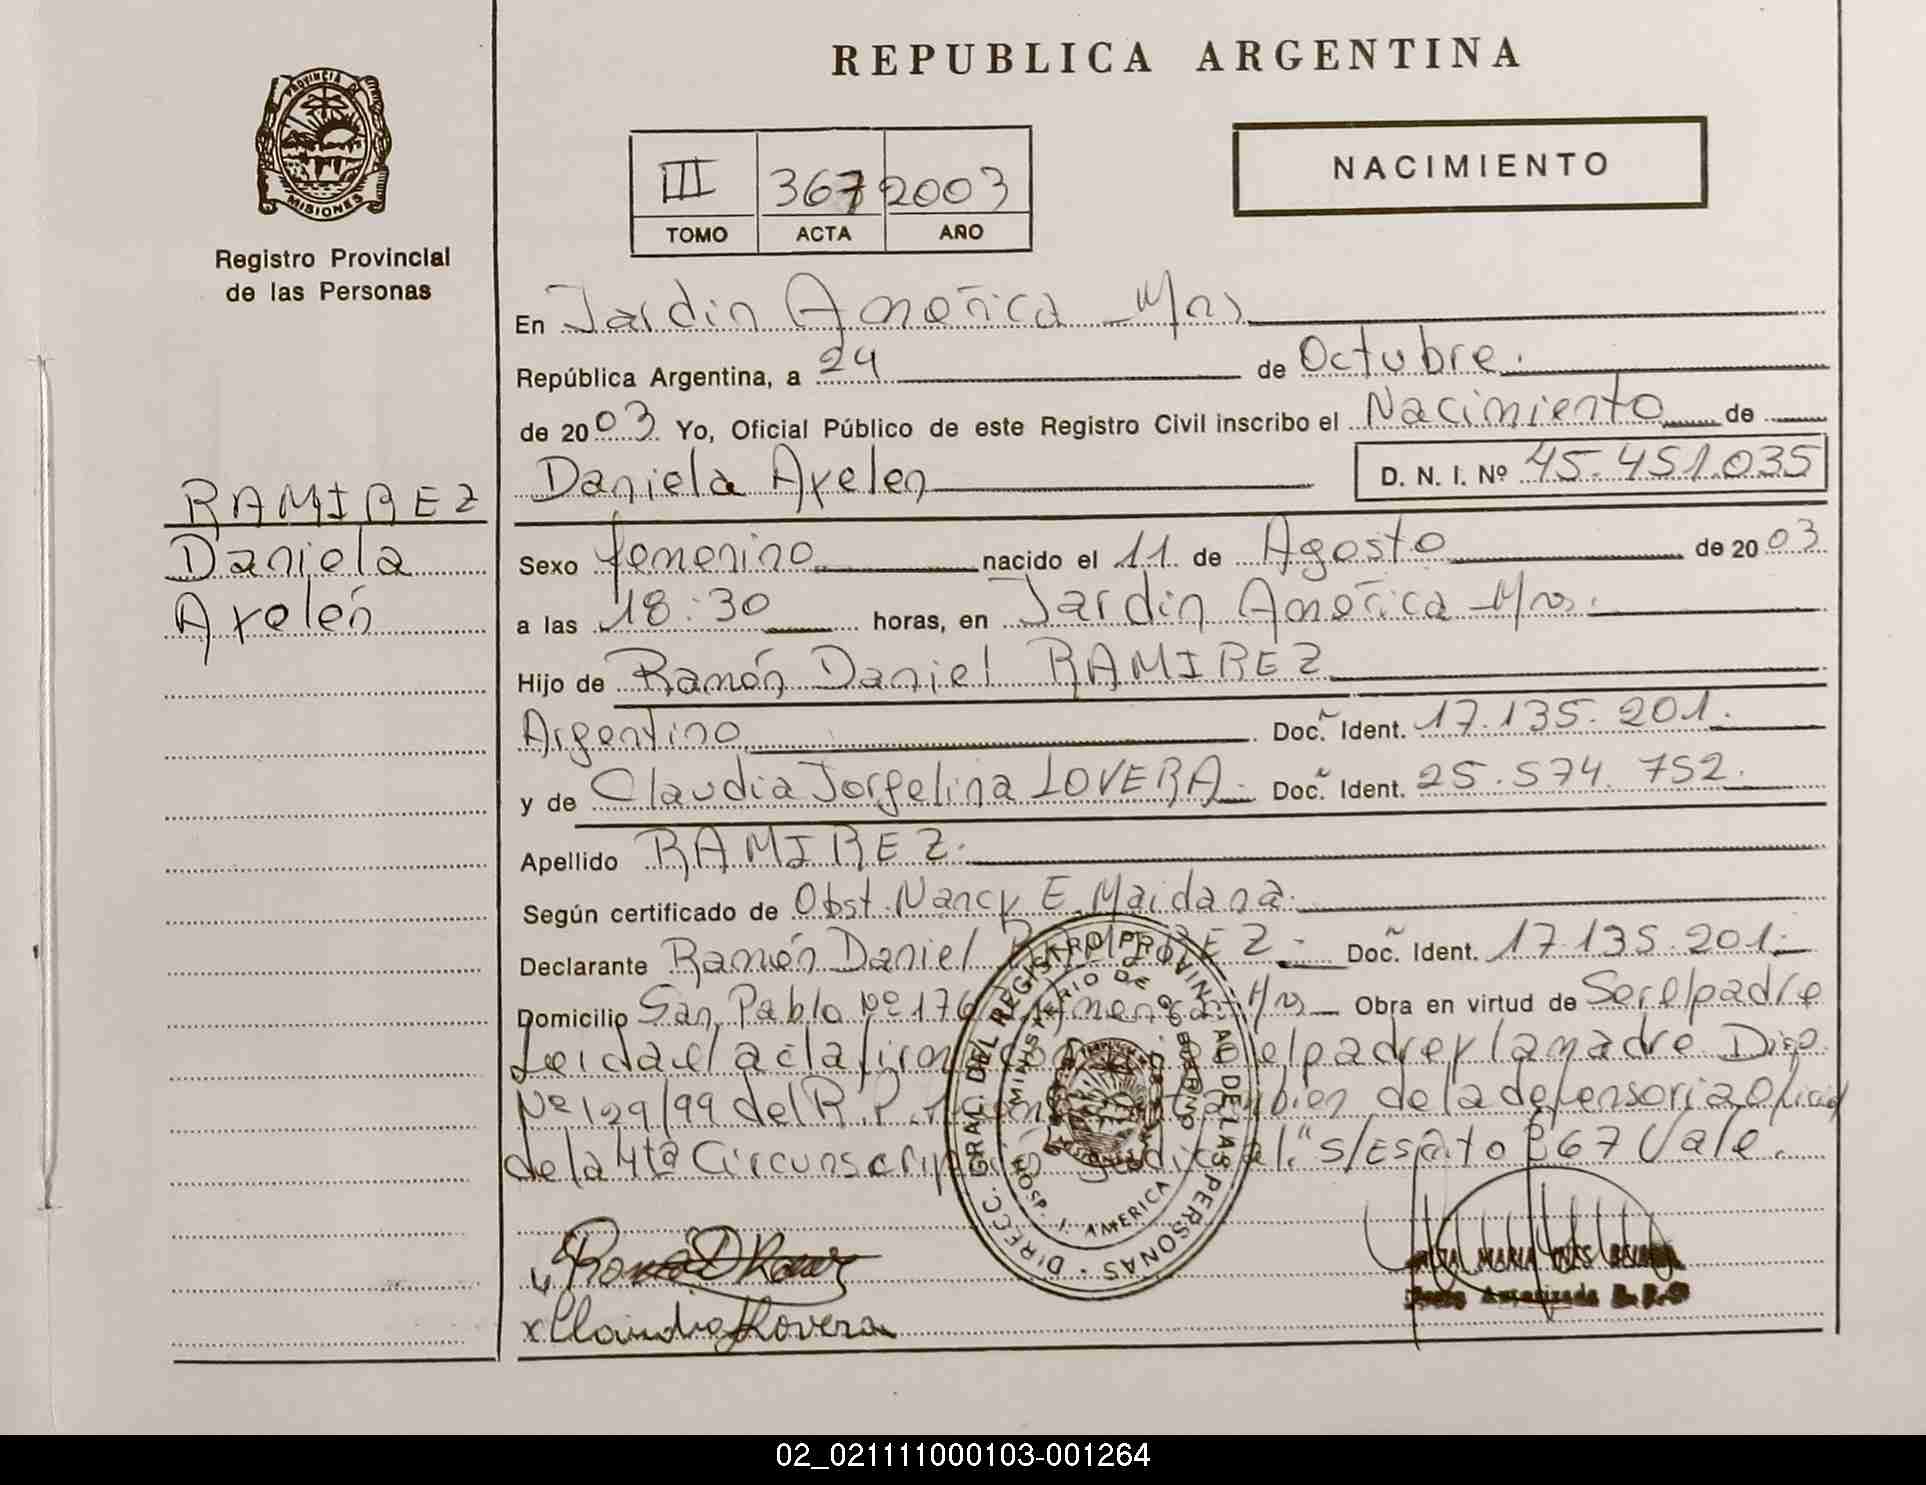 REPUBLICA ARGENTINA
PROVINCIA DE
MISIONES
Registro Provincial
de las Personas
III 367 2003
TOMO ACTA AÑO
NACIMIENTO
En Jardin América Mns
República Argentina, a 24 de Octubre.
de 2003 Yo, Oficial Público de este Registro Civil inscribo el Nacimiento de
Daniela Axelen D. N. I. Nº 45.451.035
RAMIREZ
Daniela
Axelén
Sexo femenino nacido el 11 de Agosto de 2003
a las 18:30 horas, en Jardin América Mns.
Hijo de Ramón Daniel RAMIREZ
Argentino Doc. Ident. 17.135.201.
y de Claudia Jorgelina LOVERA Doc. Ident. 25.574.752.
Apellido RAMIREZ.
Según certificado de Obst. Nancy E. Maidana.
Declarante Ramón Daniel RAMIREZ Doc. Ident. 17.135.201.
Domicilio San Pablo Nº 176 Mns Obra en virtud de Ser el padre
Leida el acta firman el padre y la madre Disp.
Nº 129/99 del R.P. también de la defensoria oficial
de la 4ta Circunscripción Judicial." S/Escrito 367 Vale.
DIRECC. GRAL. DEL REGISTRO PROVINCIAL DE LAS PERSONAS
MINISTERIO DE GOBIERNO
HOSP. J. AMERICA
Claudia Lovera
MARIA INES
Autorizada
02_021111000103-001264